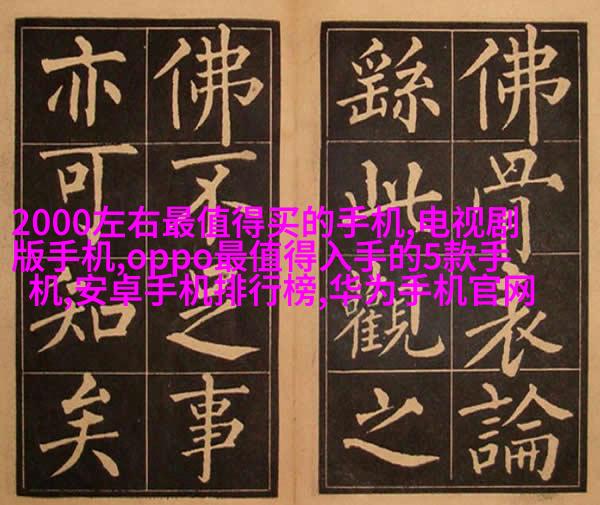 佛骨表論
繇此觀之
佛不足事
亦可知矣
2000左右最值得买的手机,电视剧
版手机,oppo最值得入手的5款手
机,安卓手机排行榜,华为手机官网